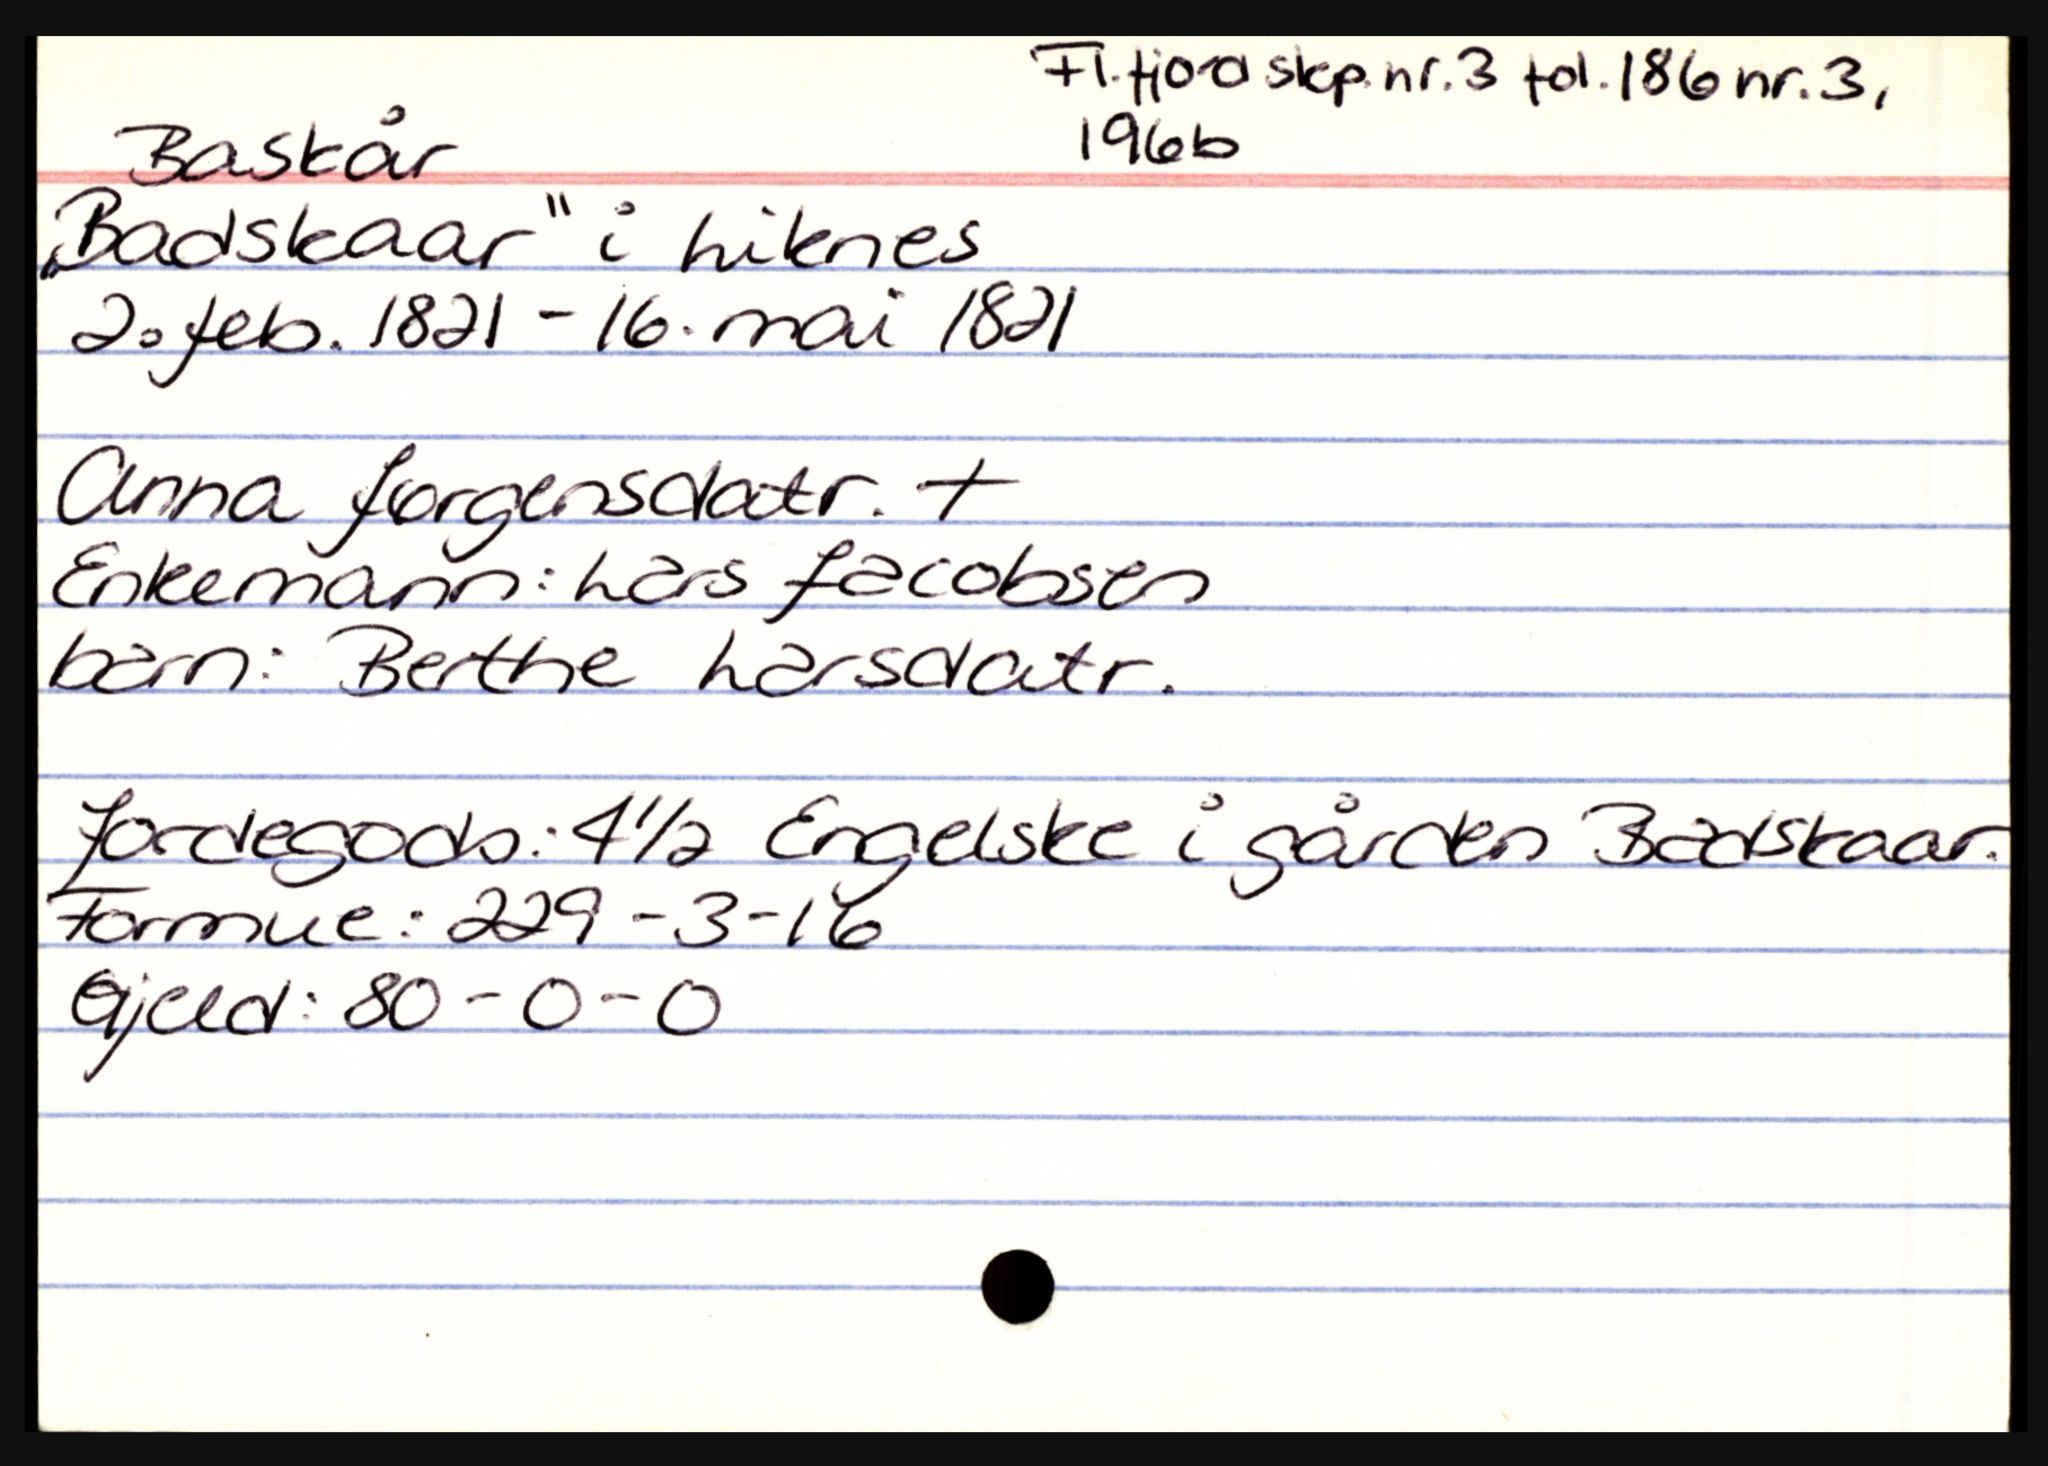 Fl.fjord skp. nr. 3 fol. 186 nr. 3,
196b
Baskår
„Badskaar" i Liknes
2. feb. 1821 - 16. mai 1821
Anna Jørgensdatr. +
Enkemann: Lars Jacobsen
barn: Berthe Larsdatr.
Jordegods: 4 1/2 Engelske i gården Badskaar.
Formue: 229 - 3 - 16
Gjeld: 80 - 0 - 0